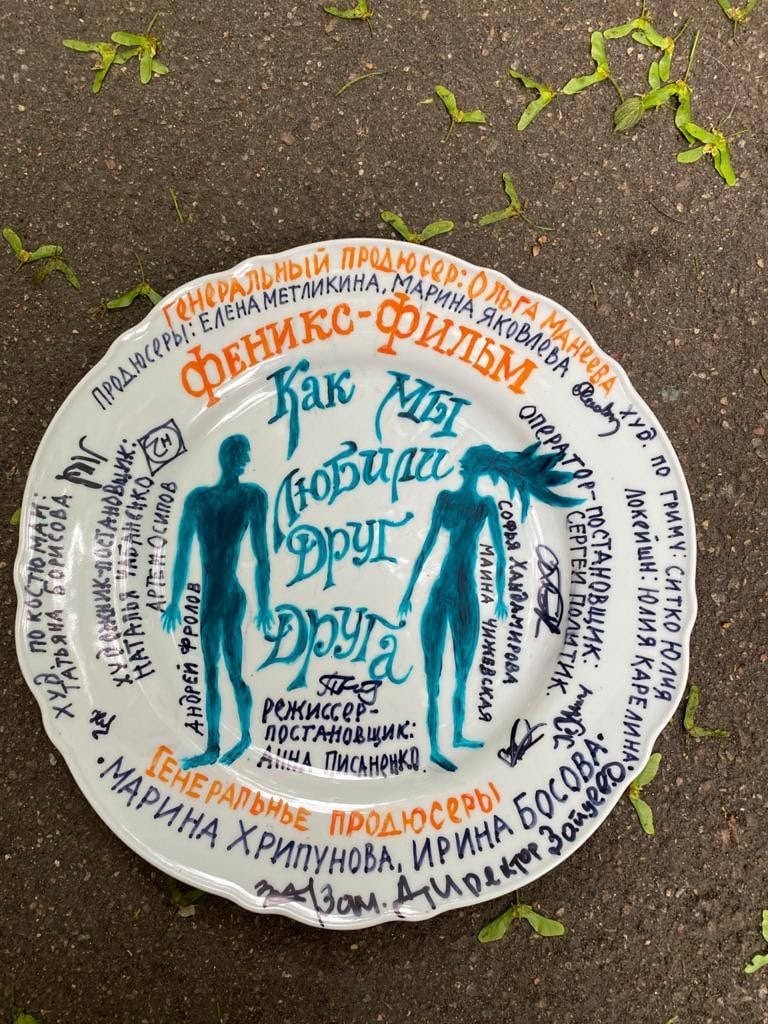 Генеральный продюсер: Ольга Манеева
Продюсеры: Елена Метликина, Марина Яковлева
Феникс-Фильм
Как мы
любили
друг
друга
Худ. по костюмам:
Татьяна Борисова
Художник-постановщик:
Наталья
Артем Осипов
Андрей Фролов
Софья
Маина Чижевская
Оператор-постановщик:
Сергей
Худ. по гриму: Ситко Юлия
Локейшн: Юлия Карелина
Режиссер-
постановщик:
Анна Писаненко
Генеральные продюсеры
Марина Хрипунова, Ирина Босова.
Зам. Директор Зайцева